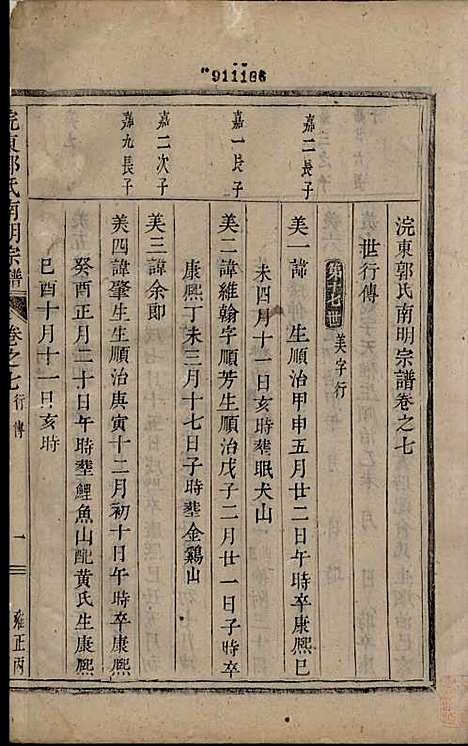 911166
浣東郭氏南明宗譜卷之七
世行傳
第十七世 美字行
嘉二長子
美一諱 生順治甲申五月廿二日午時卒康熙巳
未四月十一日亥時塟眠犬山
嘉一長子
美二諱維翰字順芳生順治戊子二月廿一日子時卒
康熙丁未三月十七日子時塟金鷄山
嘉二次子
美三諱余即
嘉九長子
美四諱肇生生順治庚寅十二月初十日午時卒康熙
癸酉正月二十日午時塟鯉魚山配黃氏生康熙
巳酉十月十一日亥時
浣東郭氏南明宗譜 卷之七 行傳 一 雍正丙